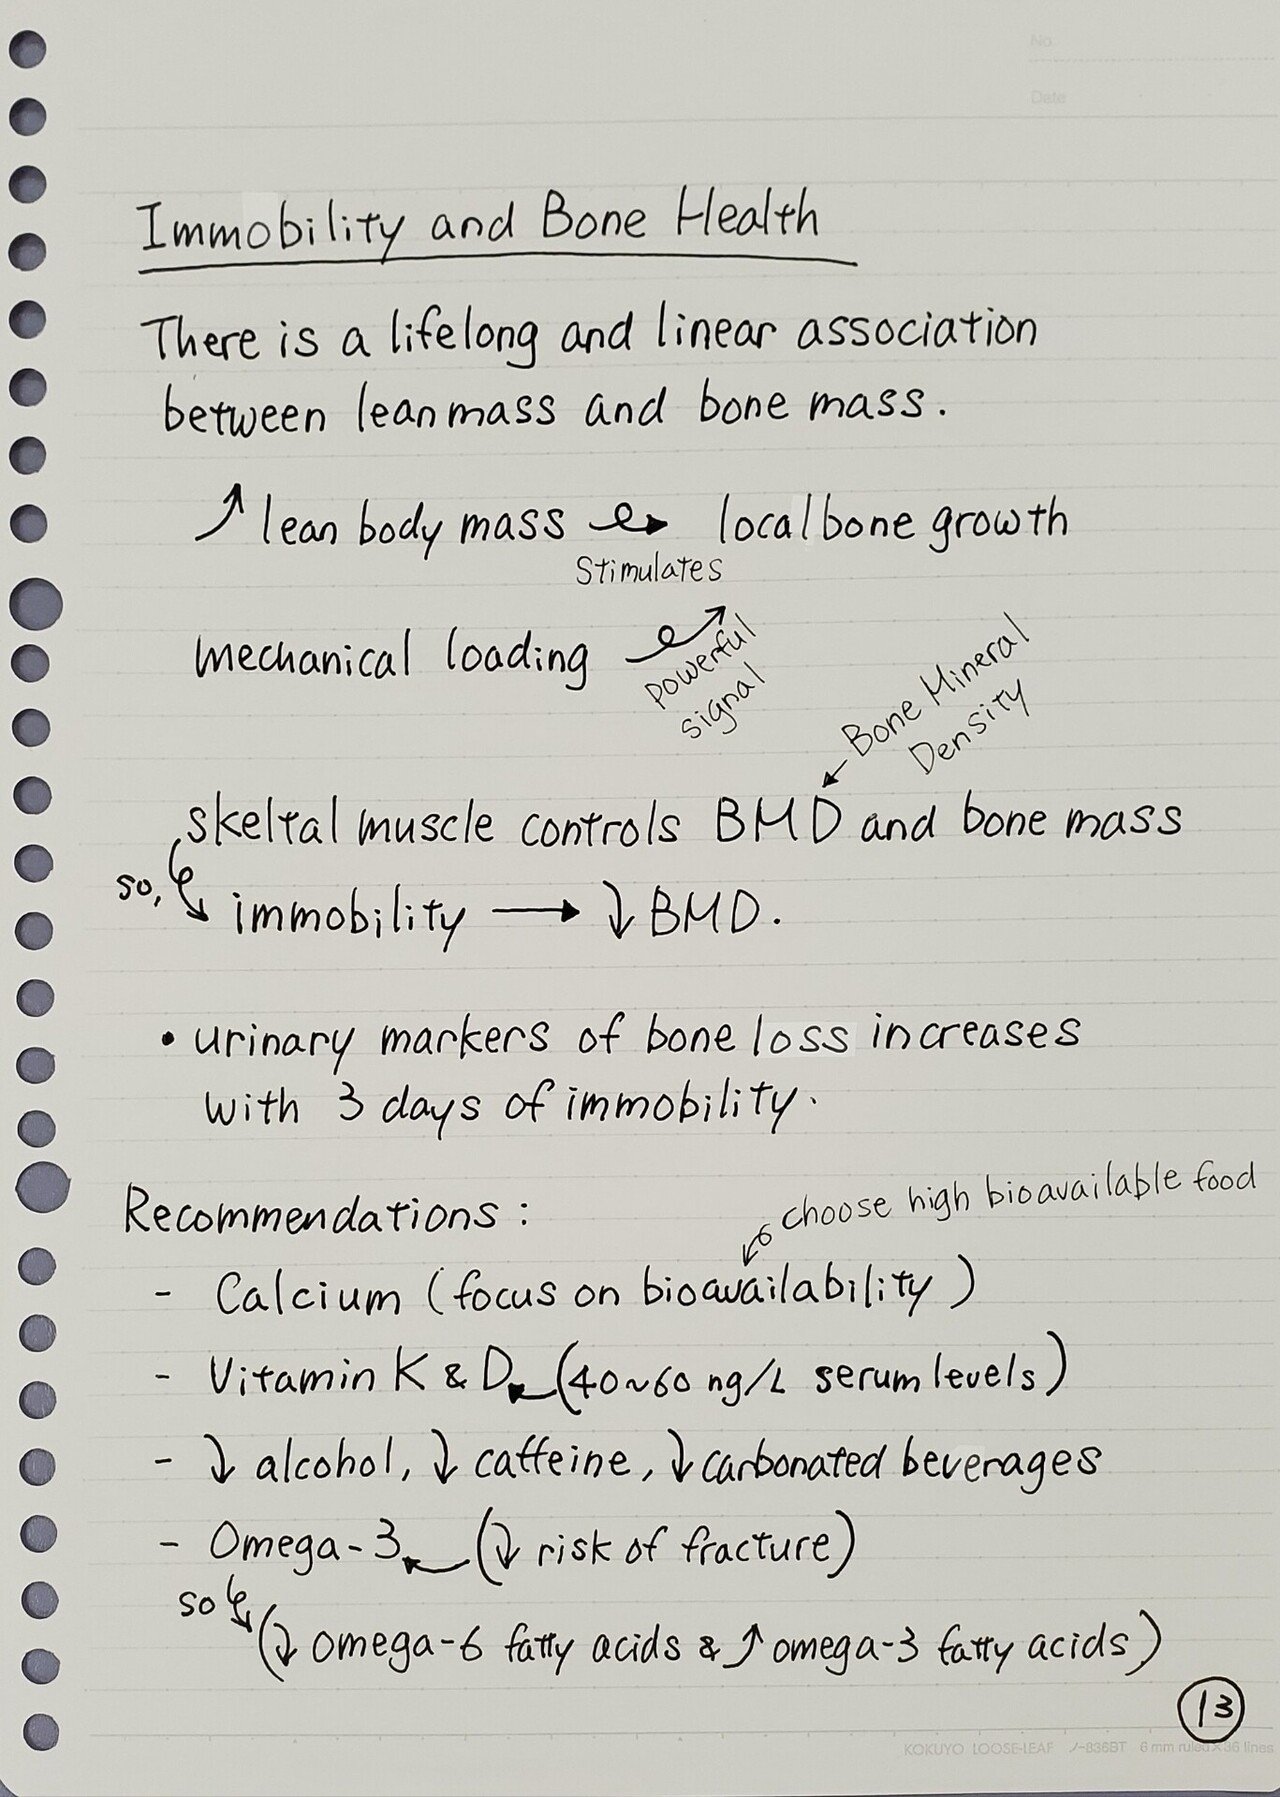 No
Date
Immobility and Bone Health
There is a lifelong and linear association
between lean mass and bone mass.
↗ lean body mass → local bone growth
Stimulates
mechanical loading ↗
powerful
signal
Bone Mineral
Density
skeltal muscle controls BMD and bone mass
so, immobility → ↓ BMD.
• urinary markers of bone loss increases
with 3 days of immobility.
Recommendations :
choose high bioavailable food
- Calcium (focus on bioavailability)
- Vitamin K & D ← (40~60 ng/L serum levels)
- ↓ alcohol, ↓ caffeine, ↓ carbonated beverages
- Omega-3 ← (↓ risk of fracture)
so
(↓ omega-6 fatty acids & ↑ omega-3 fatty acids)
13
KOKUYO LOOSE-LEAF ノ-836BT 6 mm ruled × 36 lines